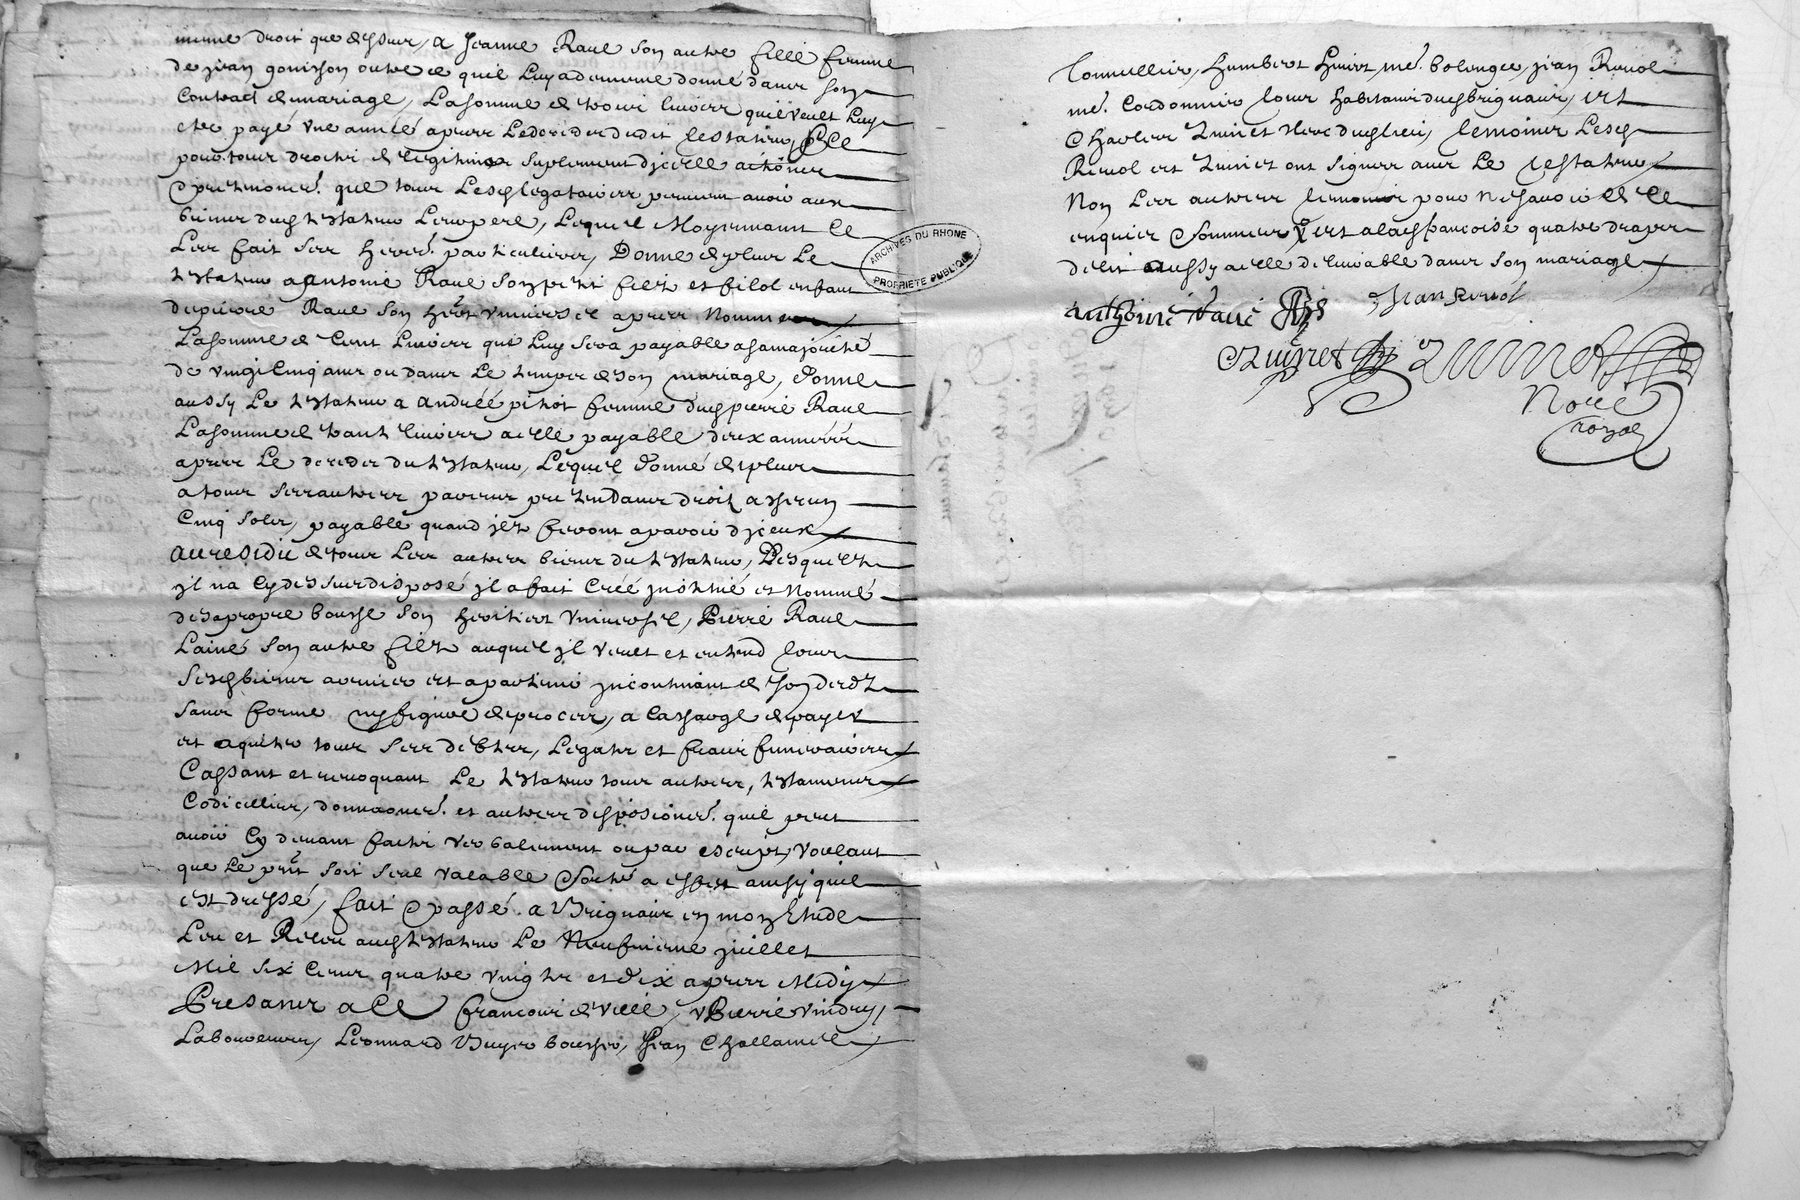 mesme droit que dessus, a Jeanne Raue son autre fille femme
de jean gonisson outre ce quil luy a demeure donné dans son
Contract de mariage, La somme de trois livres quil veult luy
estre payé une année apres Le deceder dudit testateur, Et ce
pour tous droitz de legitime suplement d'icelle actions
& pretentions que tous Lesd legataires peuvent avoir aux
biens dud testateur Leur pere, Lequel Moyennant ce
Les fait ses heres particuliers, Donne de plus Le
testateur a antoine Raue son petit filz et filol enfant
de pierre Raue son hert universel apres Nommé
La somme de Cent Livres qui luy sera payable a sa majorité
de vingt Cinq ans ou dans Le temps de son mariage, donne
aussy Le testateur a andréé pitiot femme dud pierre Raue
La somme de trante livres a elle payable deux années
apres Le deceder du testateur, Lequel donne de plus
a tous ses autres parens pretendans droit a ses biens
Cinq solz, payable quand ilz feront aparoir d'iceux
au residu de tous Les autres biens du testateur, Desquelz
il na cy dessus disposé il a fait Créé institué et Nommé
de sa propre bouche son heritier universel, Pierre Raue
Lainé son autre filz auquel il veult et entend tous
sesd biens arriver et apartenir incontinant de son deces
sans forme ny figure de proces, a la charge de payer
et aquiter tous ses debtes, Legatz et frais funeraires
Cassant et revoquant Le testateur tous autres, testamens
Codicilles, donnaones. et autres disposiones. quil peut
avoir Cy devant faites verbalement ou par escript, voulant
que Le pnt soit seul valable & sorte a effect ainsy quil
est dressé, fait & passé a Brignais en mon Estude
Leu et Releu aud testateur Le Neufvieme juillet
Mil six Cens quatre vingtz et dix apres Midy
Presans a Ce francois deville, Pierre vindry,
Laboureurs, Leonnard Buyer boucher, Jean Challamel
Tonnellier, humbert huiot, me. bolongee, jean Revol
me. Cordonnier tous habitans dud brignais, et
Charles Zuinet clerc dud lieu, tesmoins Lesd
Revol et Zuinet ont signes avec Le testateur
Non Les autres tesmoins pour ne scavoir de ce
enquis & sommes
delit aussy a elle delivrable dans son mariage
anthoine Raue
Jean Revol
Nore
royal
ARCHIVES DU RHONE
PROPRIETE PUBLIQUE